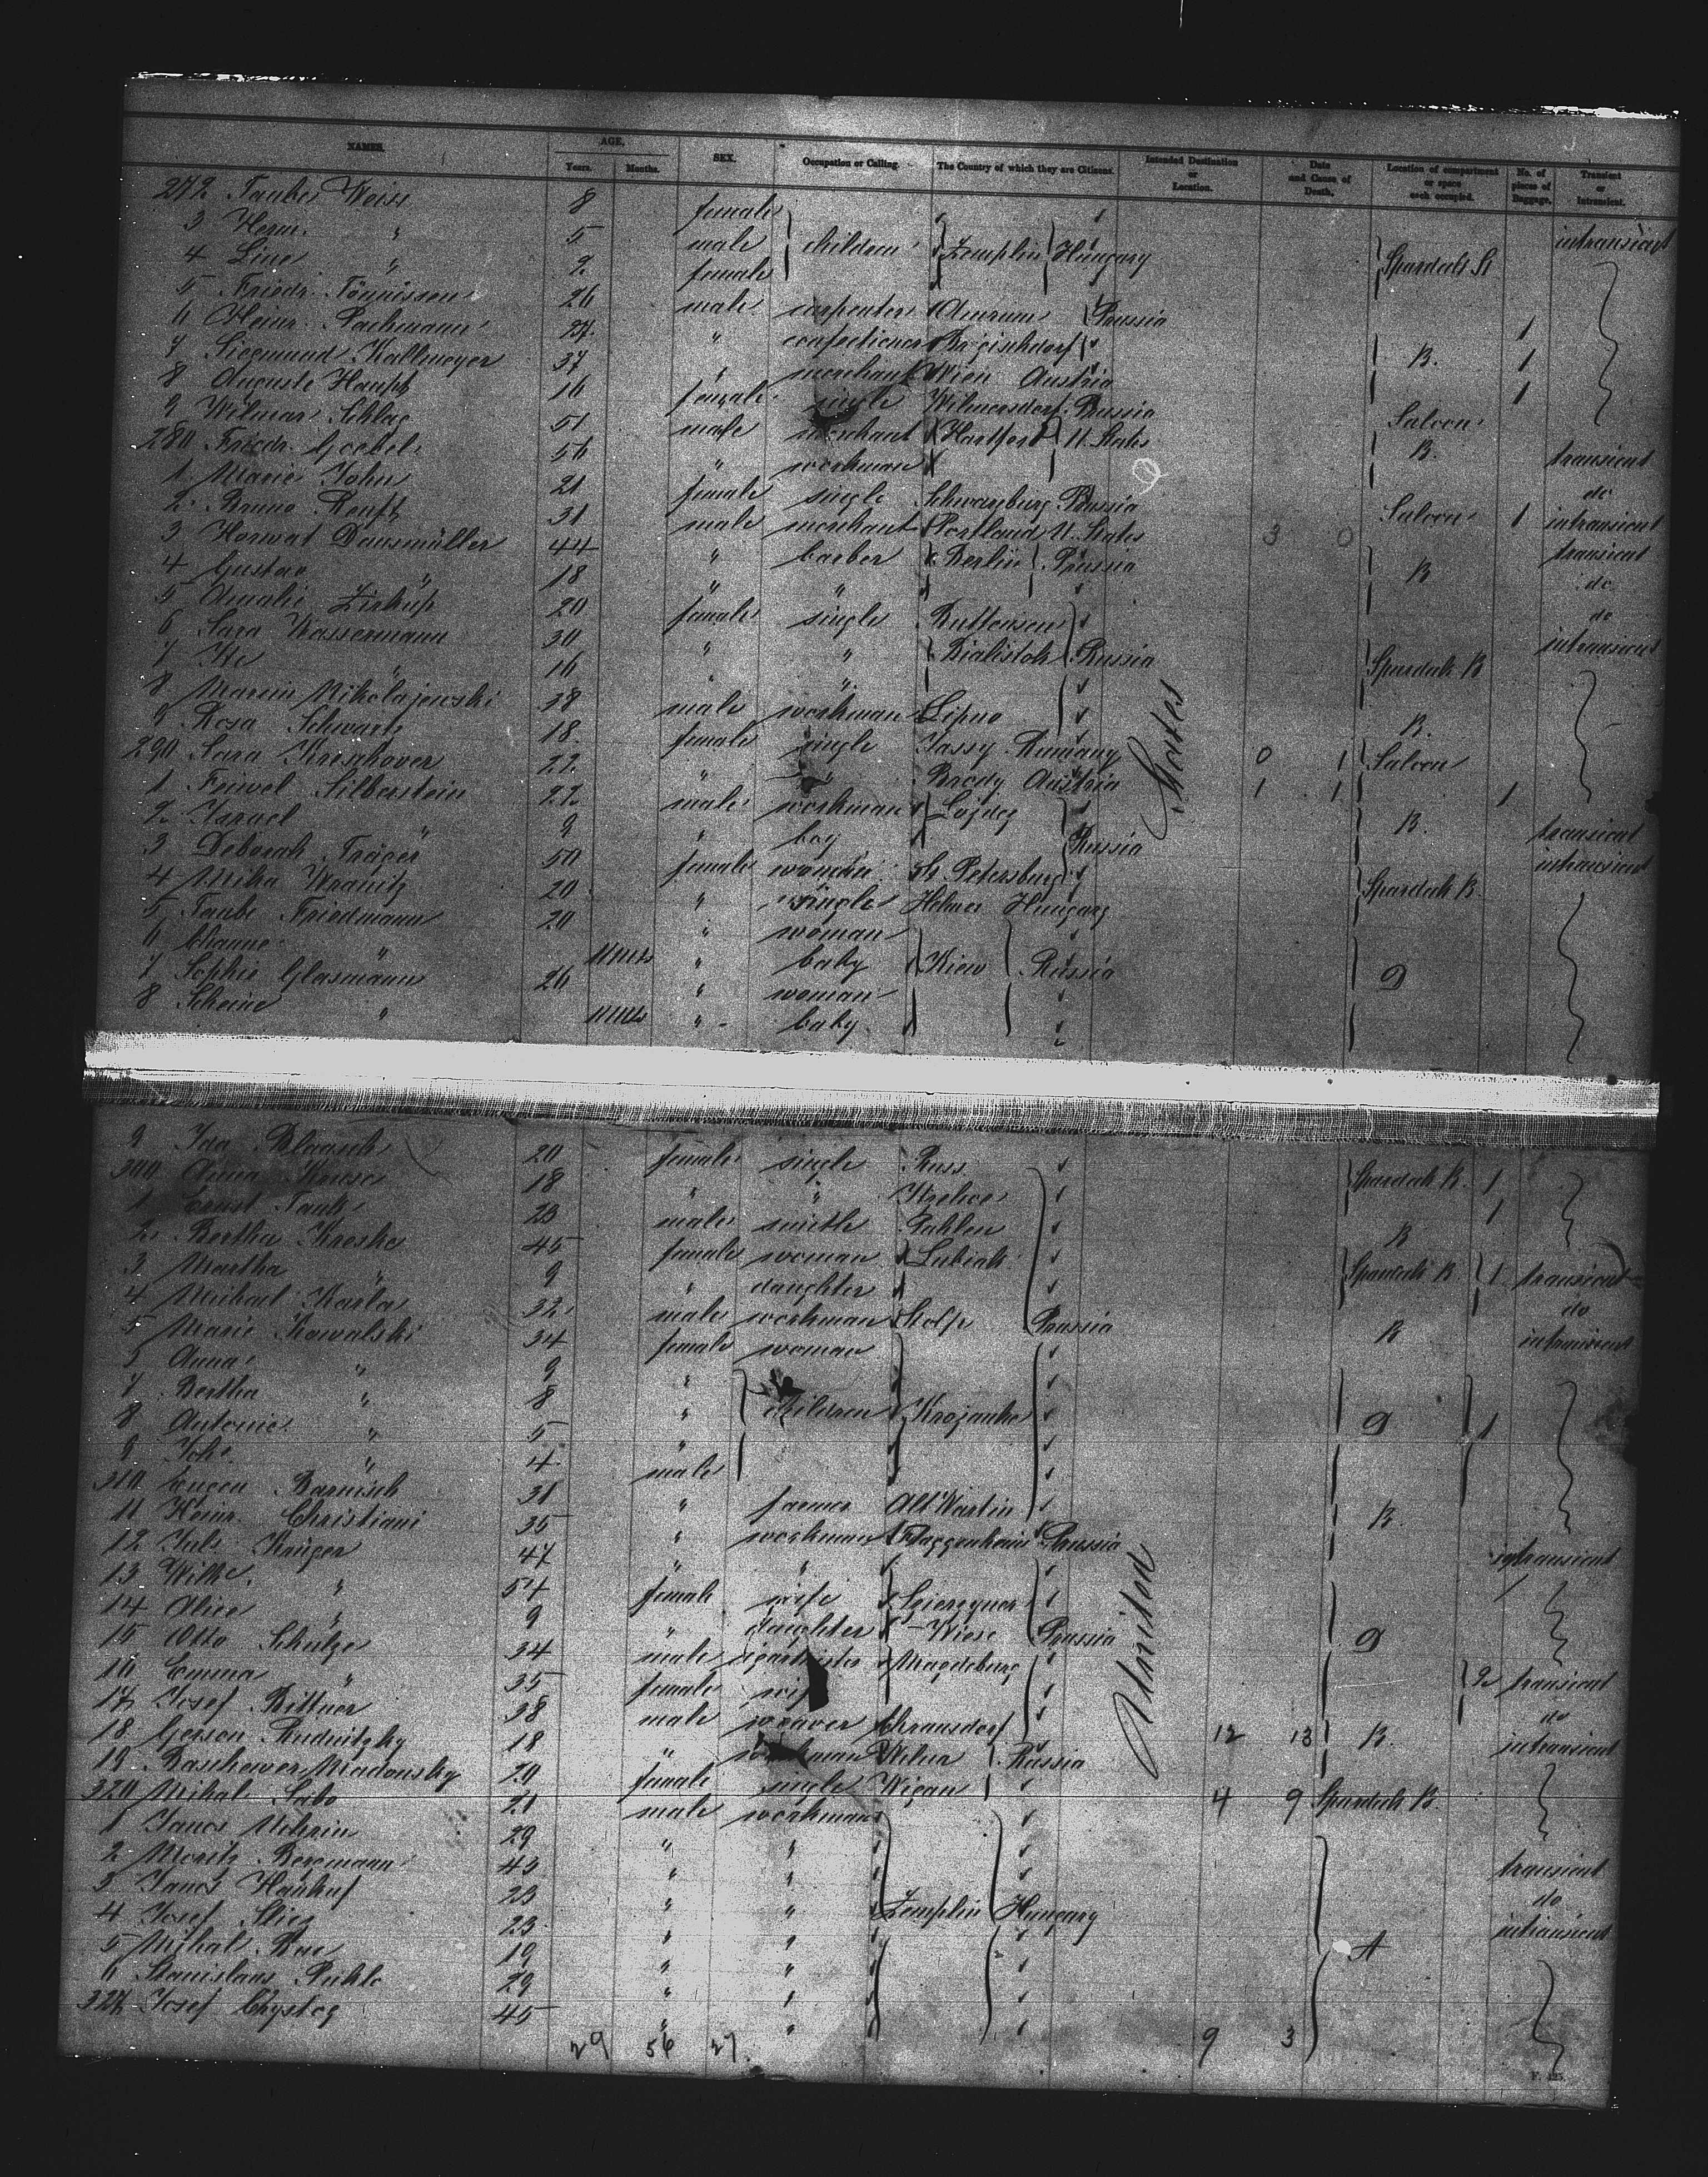 NAMES. AGE. Years. Months. SEX. Occupation or Calling. The Country of which they are Citizens. Intended Destination or Location. Date and Cause of Death. Location of compartment or space each occupied. No. of pieces of Baggage. Transient or Intransient.
272 Taube Weiss 8 female intransient
3 Herm. " 5 male children Zemplin Hungary Spardeck St
4 Line " 2 female
5 Friedr. Tönnissen 26 male carpenter Amrum Prussia 1
6 Heinr. Pachmann 27 " confectioner B. 1
7 Siegmund Kallmeyer 37 " merchant Wien Austria 1
8 Auguste Haupt 16 female single Wilmersdorf Prussia Saloon
9 Wilmar Schlag 51 male merchant Hartford U. States B. transient
280 Friedr. Goebel 56 " workman do
1 Marie John 21 female single Schwarzburg Prussia Saloon 1 intransient
2 Bruno Renft 31 male merchant Portland U. States 3 0 transient
3 Horwat Dausmüller 44 " barber Berlin Prussia B do
4 Gustav " 18 " " do
5 Amalie Zirkup 20 female single intransient
6 Sara Wassermann 30 " " Bialistok Russia Spardeck B
7 " 16 " "
8 Marcin Nikolajewski 38 male workman Lipno B.
9 Rosa Schwartz 18 female single Jassy Rumany 0 1 Saloon
290 Sara 22 " " Brody Austria 1 1 1
1 Feiwel Silberstein 22 male workman B. transient
2 Israel " 9 " boy Russia intransient
3 Deborah Träger 50 female woman St Petersburg Spardeck B.
4 Mika Wranitz 20 " single Hungary
5 Taube Friedmann 20 " woman
6 Channe " 11 Mts " baby Kiew Russia D
7 Sophie Glasmann 26 " woman
8 Scheine " 11 Mts " baby
States
9 Ida 20 female single Russ Spardeck B. 1
300 Anna Kruse 18 " " 1
1 Ernst Tank 23 male smith Pahlen B
2 Bertha Kreske 45 female woman Lubiak Spardeck B 1 transient
3 Martha " 9 " daughter do
4 Michael Karla 32 male workman Stolp Prussia B intransient
5 Marie Kowalski 34 female woman
5 Anna " 9 "
7 Bertha " 8 " children Krojanke D 1
8 Antonie " 5 "
9 Joh. " 4 male
310 Eugen Barnisch 31 " farmer Alt Wartin B.
11 Heinr. Christiani 35 " workman Prussia intransient
12 Jul. Krüger 47 " "
13 Wilh. " 54 female wife
14 Alice " 9 " daughter Wiese Prussia D
15 Otto Schulze 34 male Magdeburg 2 transient
16 Emma " 35 female wife do
17 Josef Bittner 38 male weaver 12 13 B. intransient
18 Gerson Rudnitzky 18 " workman Wilna Russia
19 Madonsky 20 female single 4 9 Spardeck B.
320 Mihal Sabo 21 male workman transient
1 Janos 29 " " do
2 Moritz Bergmann 43 " " intransient
3 Janos 23 " " Zemplin Hungary
4 Josef 23 " " A
5 Mihal 19 " "
6 Stanislaus 29 " "
327 Josef 45 " "
United
29 56 27 9 3